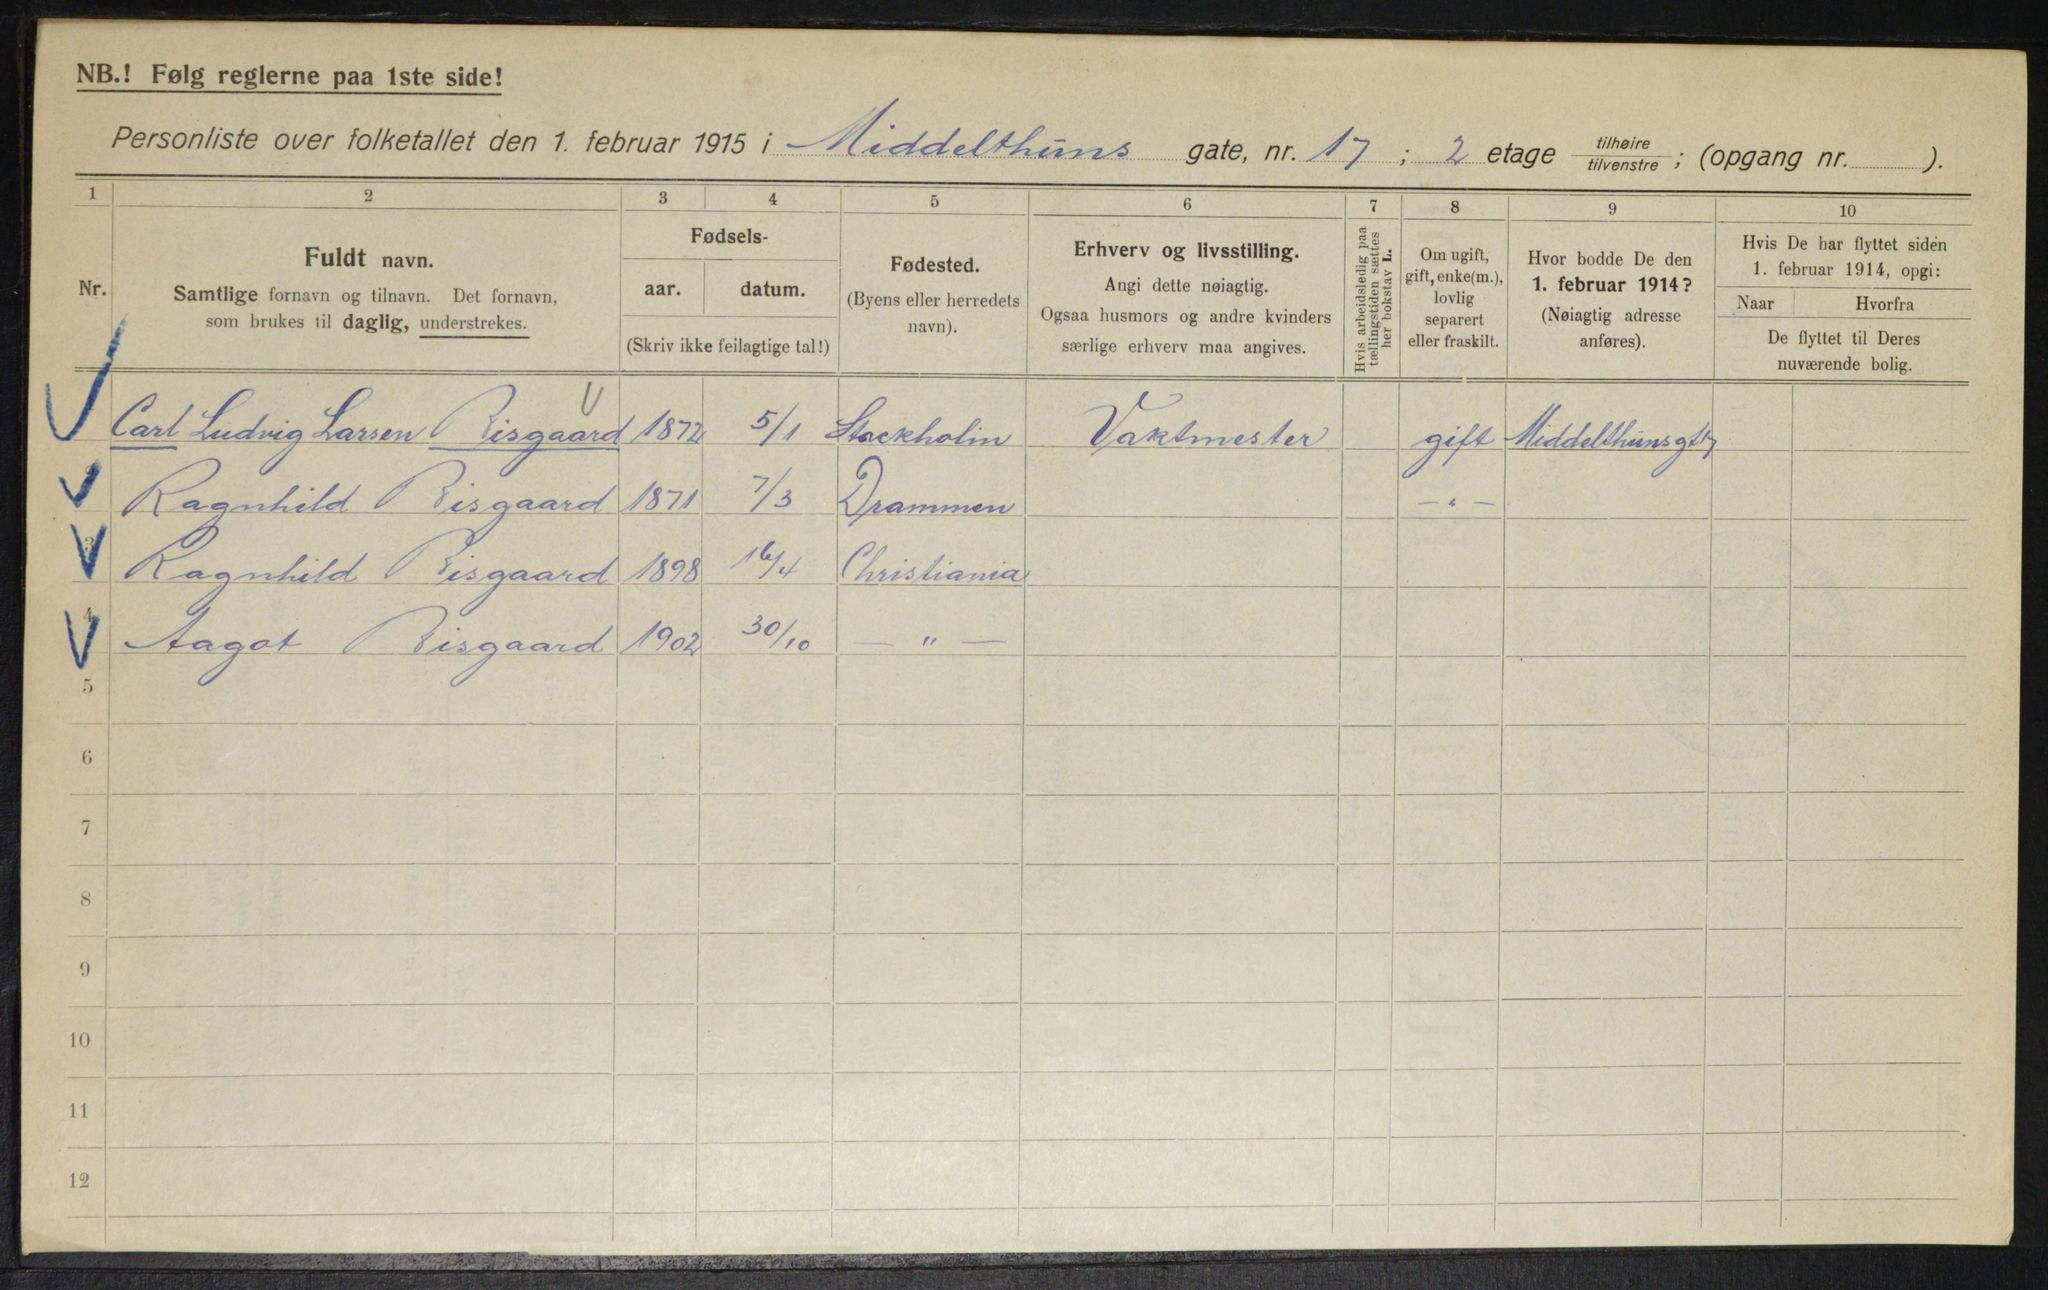 NB.! Følg reglerne paa 1ste side!
Personliste over folketallet den 1. februar 1915 i Middelthuns gate, nr. 17 ; 2 etage tilhøire / tilvenstre ; (opgang nr. ).
1 2 3 4 5 6 7 8 9 10
Nr.
Fuldt navn.
Samtlige fornavn og tilnavn. Det fornavn,
som brukes til daglig, understrekes.
Fødsels-
aar. datum.
(Skriv ikke feilagtige tal!)
Fødested.
(Byens eller herredets
navn).
Erhverv og livsstilling.
Angi dette nøiagtig.
Ogsaa husmors og andre kvinders
særlige erhverv maa angives.
Hvis arbeidsledig paa
tællingstiden sættes
her bokstav L.
Om ugift,
gift, enke(m.),
lovlig
separert
eller fraskilt.
Hvor bodde De den
1. februar 1914?
(Nøiagtig adresse
anføres).
Hvis De har flyttet siden
1. februar 1914, opgi:
Naar Hvorfra
De flyttet til Deres
nuværende bolig.
Carl Ludvig Larsen Bisgaard 1872 5/1 Stockholm Vaktmester gift Middelthunsgt 17
Ragnhild Bisgaard 1871 7/3 Drammen — " —
3 Ragnhild Bisgaard 1898 16/4 Christiania
4 Aagot Bisgaard 1902 30/10 — " —
5
6
7
8
9
10
11
12